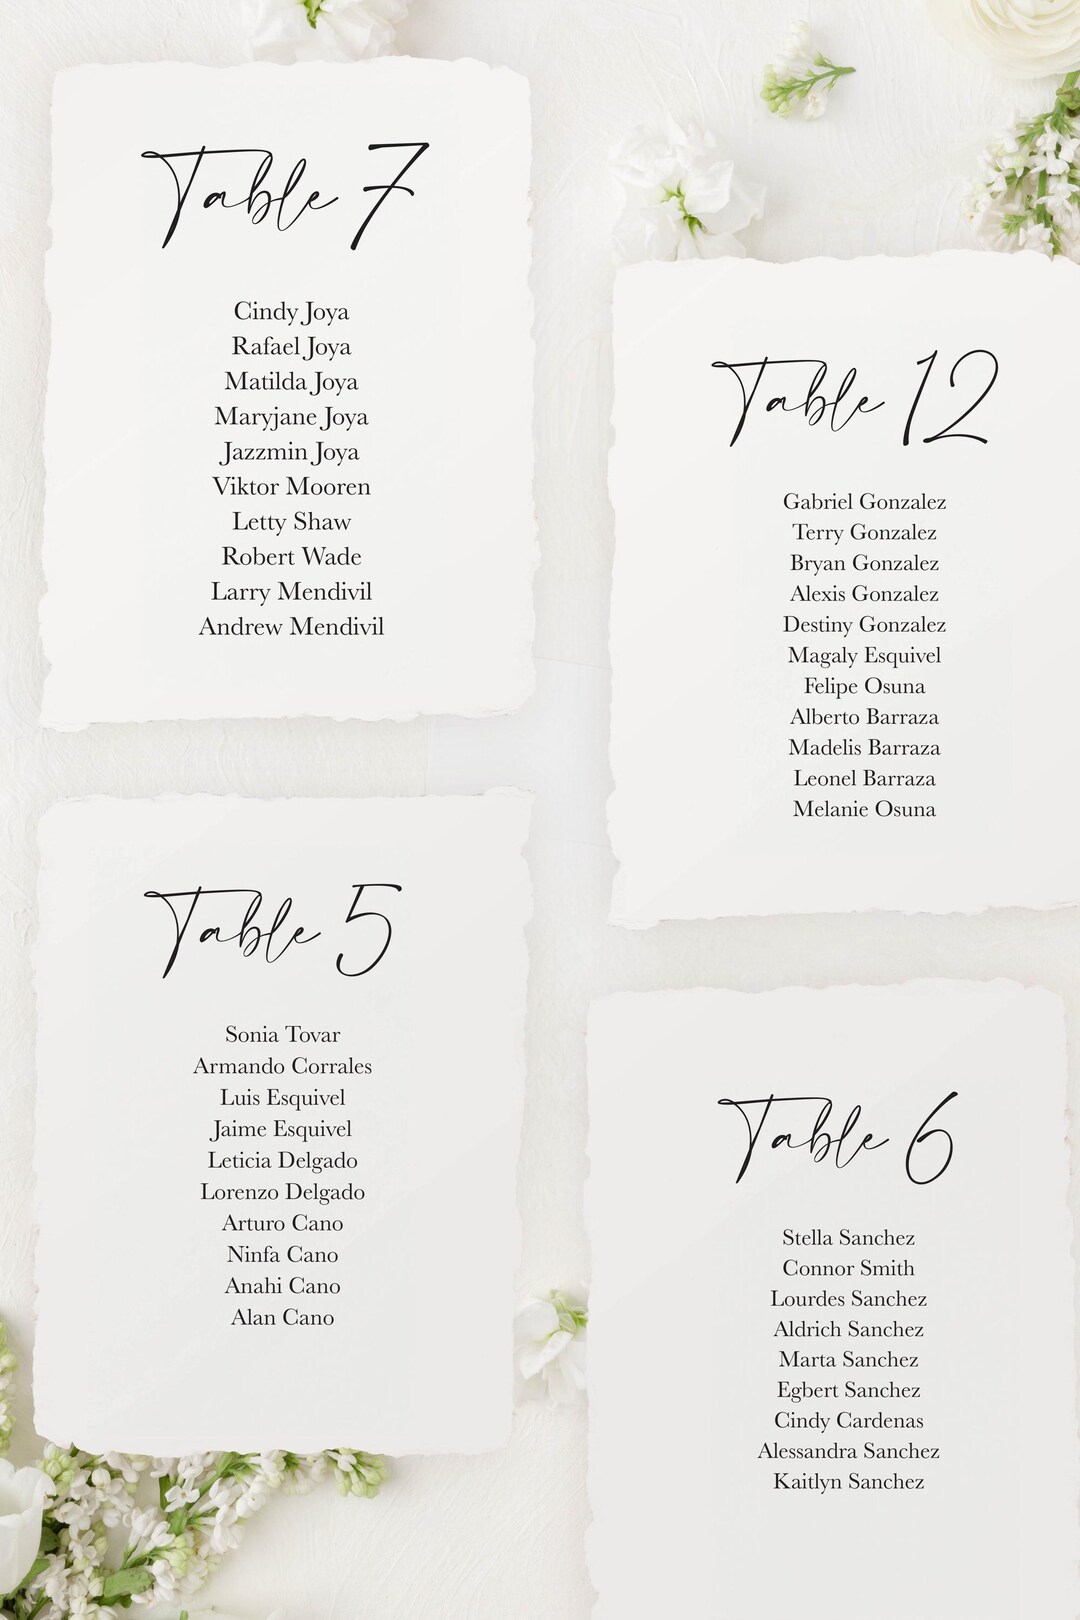 Table 7
Cindy Joya
Rafael Joya
Matilda Joya
Maryjane Joya
Jazzmin Joya
Viktor Mooren
Letty Shaw
Robert Wade
Larry Mendivil
Andrew Mendivil
Table 12
Gabriel Gonzalez
Terry Gonzalez
Bryan Gonzalez
Alexis Gonzalez
Destiny Gonzalez
Magaly Esquivel
Felipe Osuna
Alberto Barraza
Madelis Barraza
Leonel Barraza
Melanie Osuna
Table 5
Sonia Tovar
Armando Corrales
Luis Esquivel
Jaime Esquivel
Leticia Delgado
Lorenzo Delgado
Arturo Cano
Ninfa Cano
Anahi Cano
Alan Cano
Table 6
Stella Sanchez
Connor Smith
Lourdes Sanchez
Aldrich Sanchez
Marta Sanchez
Egbert Sanchez
Cindy Cardenas
Alessandra Sanchez
Kaitlyn Sanchez